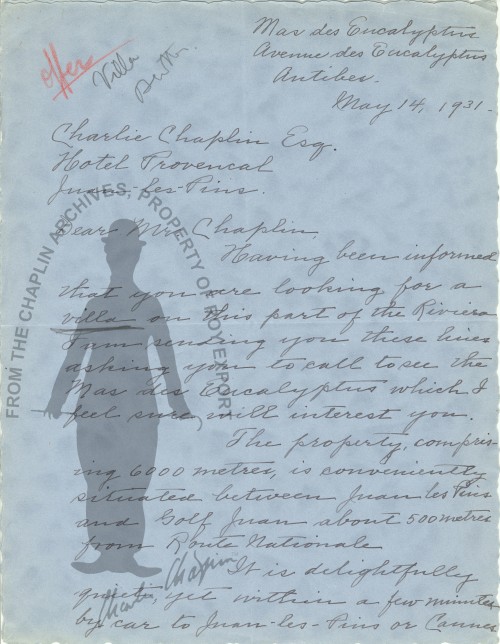 offers
Villa
Mas des Eucalyptus
Avenue des Eucalyptus
Antibes.
May 14, 1931.
Charlie Chaplin Esq.
Hotel Provencal
Juan-les-Pins.
Dear Mr. Chaplin,
Having been informed
that you are looking for a
villa on this part of the Riviera
I am sending you these lines
asking you to call to see the
Mas des Eucalyptus which I
feel sure, will interest you.
The property, compris-
ing 6000 metres, is conveniently
situated between Juan les Pins
and Golf Juan about 500 metres
from Route Nationale
It is delightfully
quiet, yet within a few minutes
by car to Juan-les-Pins or Cannes
FROM THE CHAPLIN ARCHIVES, PROPERTY OF ROY EXPORT
Charlie Chaplin